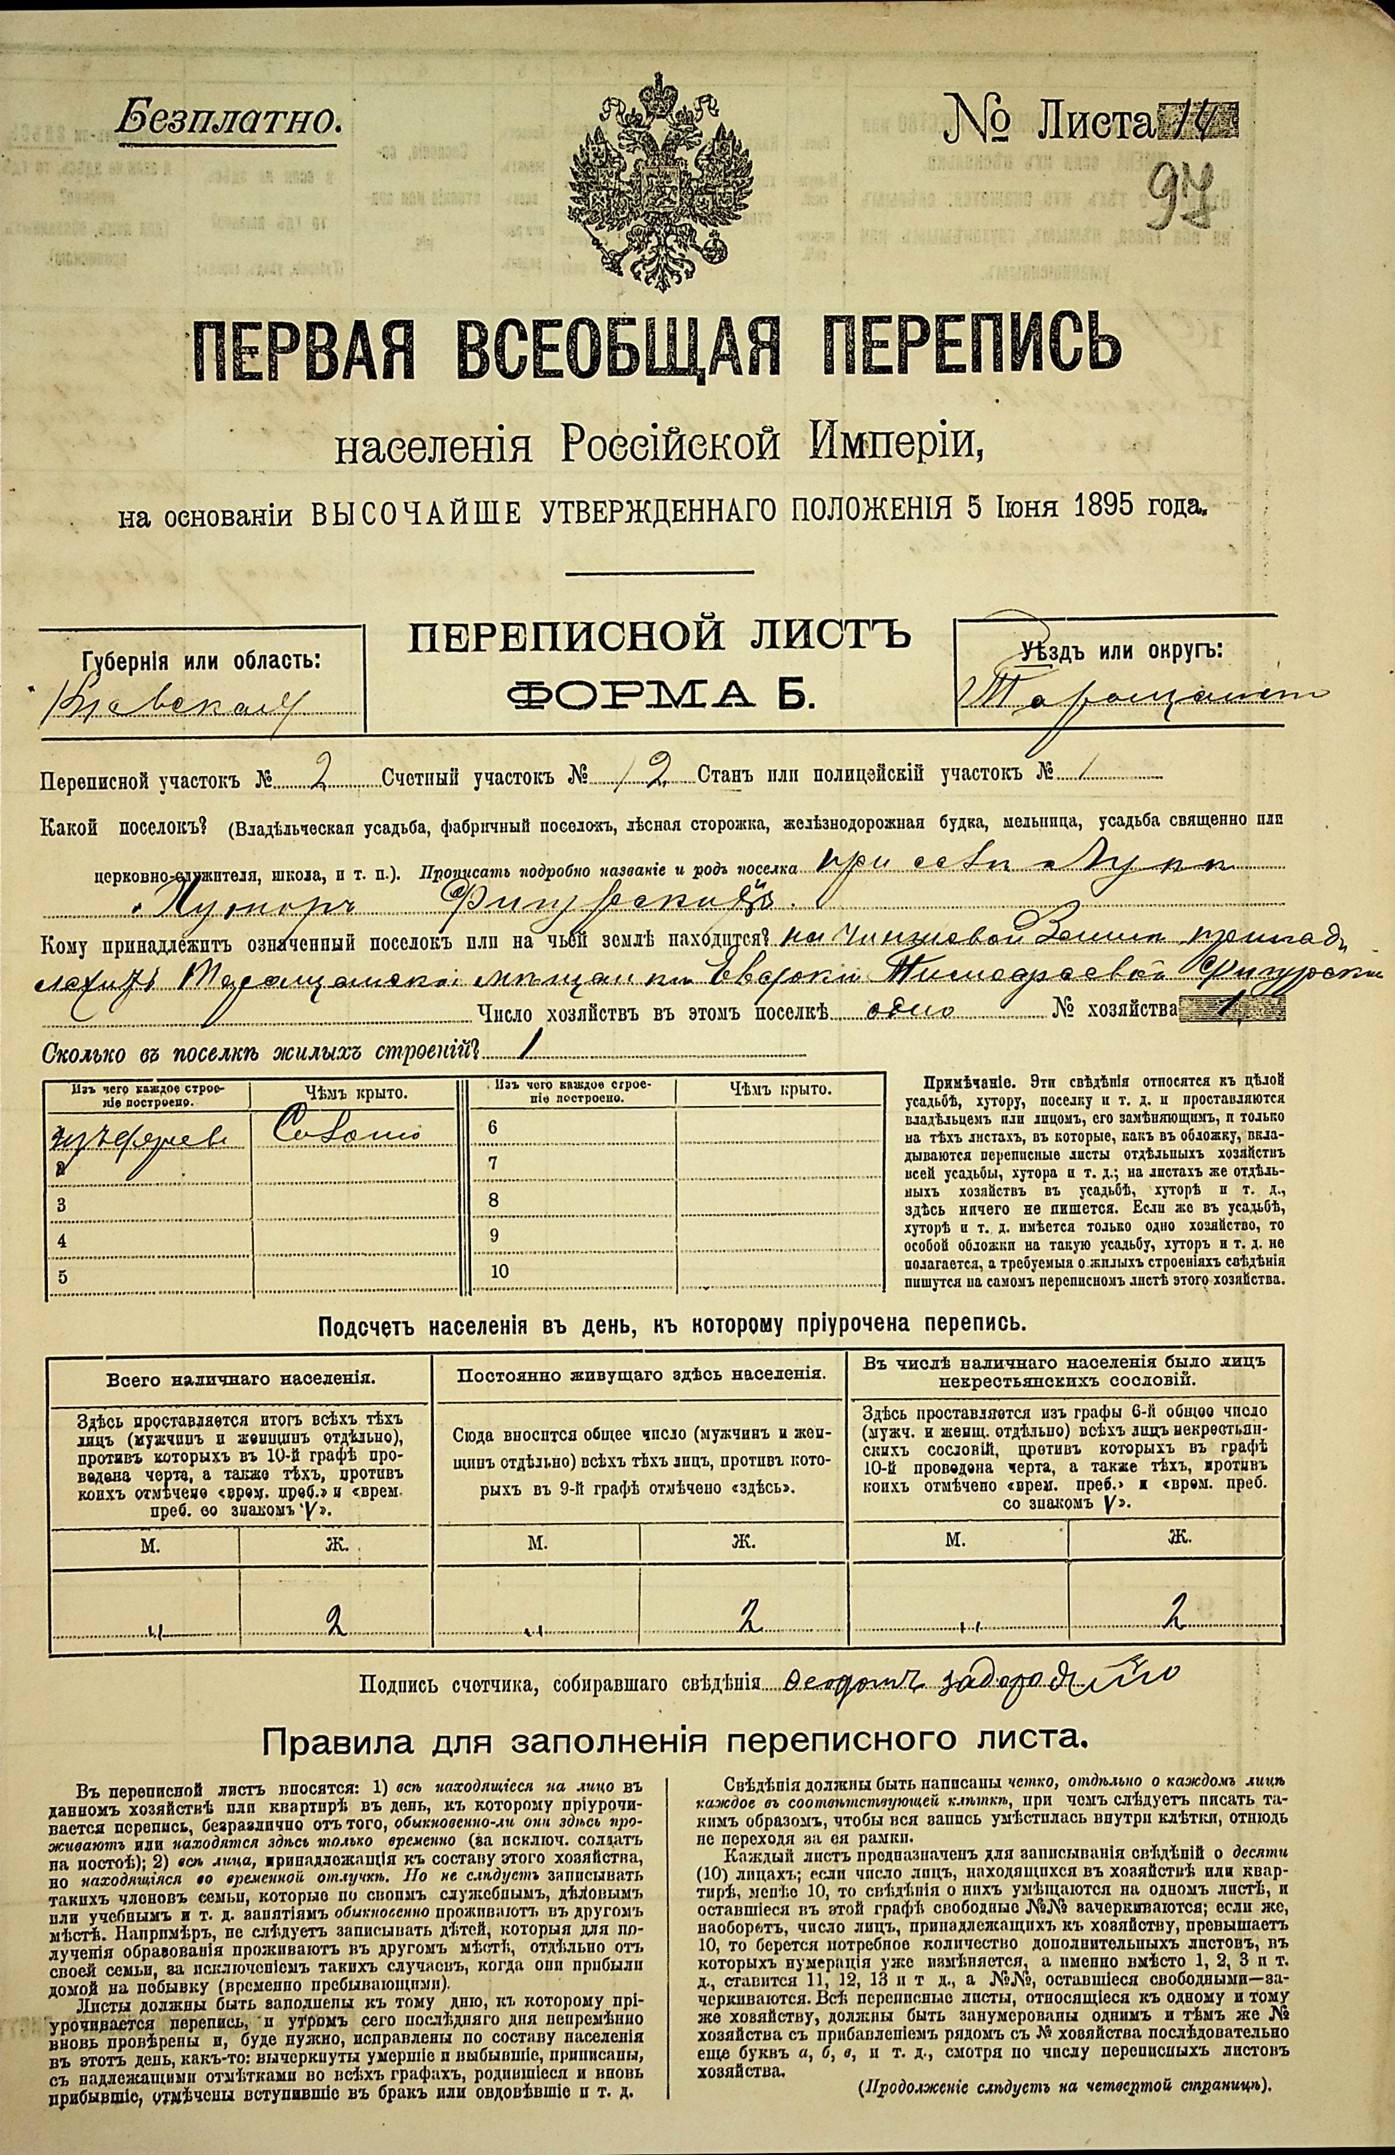 Безплатно.
№ Листа 14
97
ПЕРВАЯ ВСЕОБЩАЯ ПЕРЕПИСЬ
населенія Россійской Имперіи,
на основаніи ВЫСОЧАЙШЕ УТВЕРЖДЕННАГО ПОЛОЖЕНІЯ 5 Іюня 1895 года.
ПЕРЕПИСНОЙ ЛИСТЪ
ФОРМА Б.
Губернія или область:
Кіевская
Уѣздъ или округъ:
Таращанскій
Переписной участокъ № 2 Счетный участокъ № 12 Станъ или полицейскій участокъ № 1
Какой поселокъ? (Владѣльческая усадьба, фабричный поселокъ, лѣсная сторожка, желѣзнодорожная будка, мельница, усадьба священно или
церковно-служителя, школа, и т. п.). Прописать подробно названіе и родъ поселка при селѣ Луки
Хуторъ Фигурскій
Кому принадлежитъ означенный поселокъ или на чьей землѣ находится? на чиншевой Земли принад
лежитъ Таращанской мѣщанки Фигурской
Число хозяйствъ въ этомъ поселкѣ одно № хозяйства 1
Сколько въ поселкѣ жилыхъ строеній? 1
Изъ чего каждое строе-
ніе построено.
Чѣмъ крыто.
Изъ чего каждое строе-
ніе построено.
Чѣмъ крыто.
изъ дерева Соломо 6
2 7
3 8
4 9
5 10
Примѣчаніе. Эти свѣдѣнія относятся къ цѣлой
усадьбѣ, хутору, поселку и т. д. и проставляются
владѣльцемъ или лицомъ, его замѣняющимъ, и только
на тѣхъ листахъ, въ которые, какъ въ обложку, вкла-
дываются переписные листы отдѣльныхъ хозяйствъ
всей усадьбы, хутора и т. д.; на листахъ же отдѣль-
ныхъ хозяйствъ въ усадьбѣ, хуторѣ и т. д.,
здѣсь ничего не пишется. Если же въ усадьбѣ,
хуторѣ и т. д. имѣется только одно хозяйство, то
особой обложки на такую усадьбу, хуторъ и т. д. не
полагается, а требуемыя о жилыхъ строеніяхъ свѣдѣнія
пишутся на самомъ переписномъ листѣ этого хозяйства.
Подсчетъ населенія въ день, къ которому пріурочена перепись.
Всего наличнаго населенія.
Здѣсь проставляется итогъ всѣхъ тѣхъ
лицъ (мужчинъ и женщинъ отдѣльно),
противъ которыхъ въ 10-й графѣ про-
ведена черта, а также тѣхъ, противъ
коихъ отмѣчено «врем. преб.» и «врем.
преб. со знакомъ V».
М. Ж.
„ 2
Постоянно живущаго здѣсь населенія.
Сюда вносится общее число (мужчинъ и жен-
щинъ отдѣльно) всѣхъ тѣхъ лицъ, противъ кото-
рыхъ въ 9-й графѣ отмѣчено «здѣсь».
М. Ж.
„ 2
Въ числѣ наличнаго населенія было лицъ
некрестьянскихъ сословій.
Здѣсь проставляется изъ графы 6-й общее число
(мужч. и женщ. отдѣльно) всѣхъ лицъ некрестьян-
скихъ сословій, противъ которыхъ въ графѣ
10-й проведена черта, а также тѣхъ, противъ
коихъ отмѣчено «врем. преб.» и «врем. преб.
со знакомъ V».
М. Ж.
„ 2
Подпись счетчика, собиравшаго свѣдѣнія
Правила для заполненія переписного листа.
Въ переписной листъ вносятся: 1) всѣ находящіеся на лицо въ
данномъ хозяйствѣ или квартирѣ въ день, къ которому пріурочи-
вается перепись, безразлично отъ того, обыкновенно-ли они здѣсь про-
живаютъ или находятся здѣсь только временно (за исключ. солдатъ
на постоѣ); 2) всѣ лица, принадлежащія къ составу этого хозяйства,
но находящіяся во временной отлучкѣ. Но не слѣдуетъ записывать
такихъ членовъ семьи, которые по своимъ служебнымъ, дѣловымъ
или учебнымъ и т. д. занятіямъ обыкновенно проживаютъ въ другомъ
мѣстѣ. Напримѣръ, не слѣдуетъ записывать дѣтей, которыя для по-
лученія образованія проживаютъ въ другомъ мѣстѣ, отдѣльно отъ
своей семьи, за исключеніемъ такихъ случаевъ, когда они прибыли
домой на побывку (временно пребывающими).
Листы должны быть заполнены къ тому дню, къ которому прі-
урочивается перепись, и утромъ сего послѣдняго дня непремѣнно
вновь провѣрены и, буде нужно, исправлены по составу населенія
въ этотъ день, какъ-то: вычеркнуты умершіе и выбывшіе, приписаны,
съ надлежащими отмѣтками во всѣхъ графахъ, родившіеся и вновь
прибывшіе, отмѣчены вступившіе въ бракъ или овдовѣвшіе и т. д.
Свѣдѣнія должны быть написаны четко, отдѣльно о каждомъ лицѣ
каждое въ соотвѣтствующей клѣткѣ, при чемъ слѣдуетъ писать та-
кимъ образомъ, чтобы вся запись умѣстилась внутри клѣтки, отнюдь
не переходя за ея рамки.
Каждый листъ предназначенъ для записыванія свѣдѣній о десяти
(10) лицахъ; если число лицъ, находящихся въ хозяйствѣ или квар-
тирѣ, менѣе 10, то свѣдѣнія о нихъ умѣщаются на одномъ листѣ, и
оставшіеся въ этой графѣ свободные №№ зачеркиваются; если же,
наоборотъ, число лицъ, принадлежащихъ къ хозяйству, превышаетъ
10, то берется потребное количество дополнительныхъ листовъ, въ
которыхъ нумерація уже измѣняется, а именно вмѣсто 1, 2, 3 и т.
д., ставится 11, 12, 13 и т д., а №№, оставшіеся свободными—за-
черкиваются. Всѣ переписные листы, относящіеся къ одному и тому
же хозяйству, должны быть занумерованы однимъ и тѣмъ же №
хозяйства съ прибавленіемъ рядомъ съ № хозяйства послѣдовательно
еще буквъ а, б, в, и т. д., смотря по числу переписныхъ листовъ
хозяйства.
(Продолженіе слѣдуетъ на четвертой страницѣ).